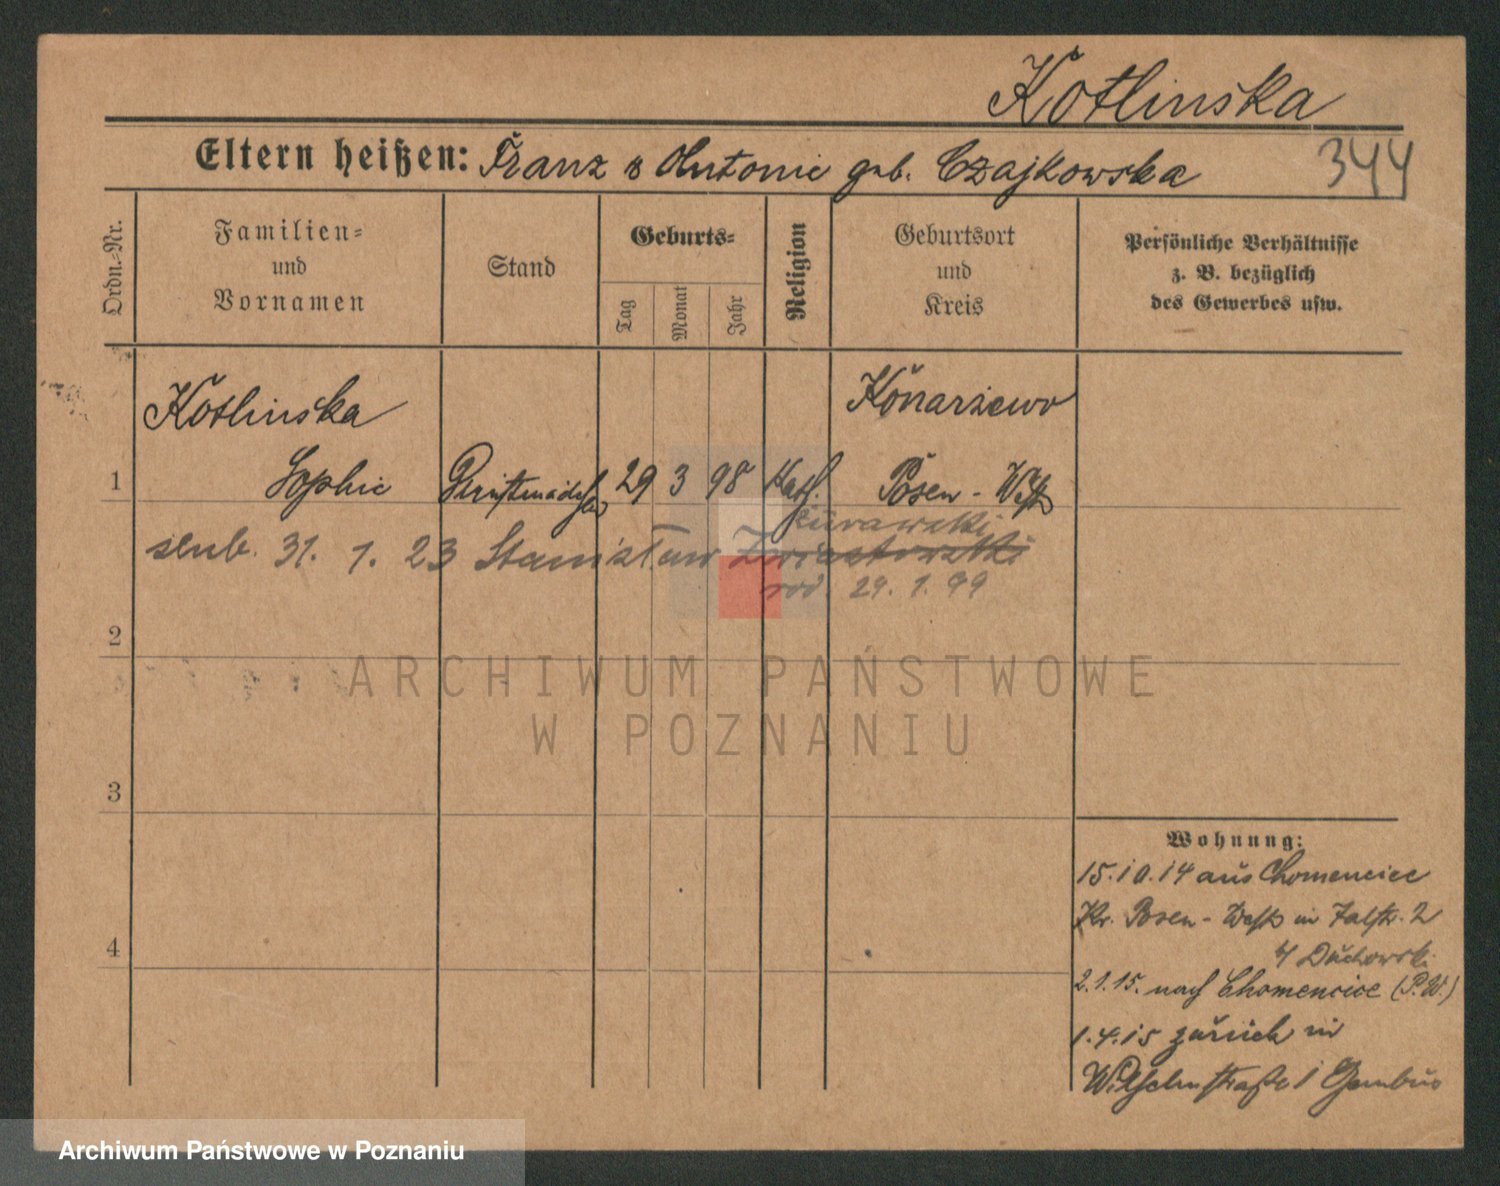 Kotlinska
Eltern heißen: Franz u Antonie geb. Czajkowska
344
Ordn.-Nr.
Familien-
und
Vornamen
Stand
Geburts-
Tag
Monat
Jahr
Religion
Geburtsort
und
Kreis
Persönliche Verhältnisse
z. B. bezüglich
des Gewerbes usw.
Kotlinska
Konarzewo
1
Sophie Dienstmädchen 29 3 98 Kath. Posen - West
Żurawski
ślub. 31. 1. 23 Stanisław
rod. 29. 1. 99
2
ARCHIWUM PAŃSTWOWE
W POZNANIU
3
4
Wohnung:
15.10.14 aus Chomencice
Kr. Posen - West in Talstr. 2
Duchowski
2.1.15. nach Chomencice (P.W.)
1.4.15 zurück in
Wilhelmstraße 1 Gambus
Archiwum Państwowe w Poznaniu